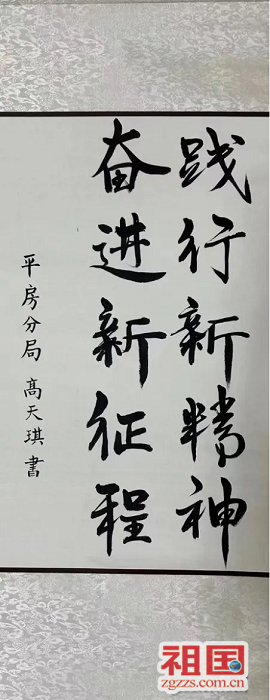 践行新精神
奋进新征程
平房分局 高天琪书
祖国
zgzzs.com.cn